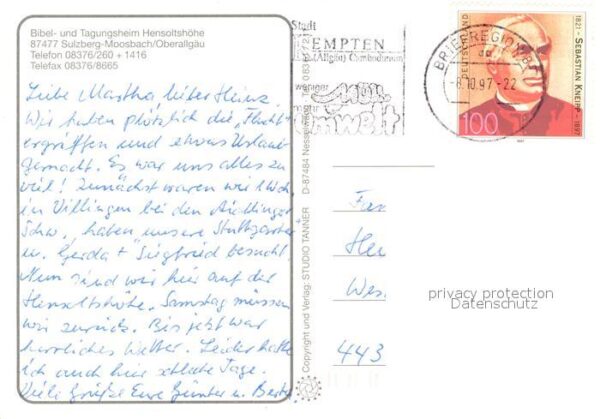 Bibel- und Tagungsheim Hensoltshöhe
87477 Sulzberg-Moosbach/Oberallgäu
Telefon 08376/260 + 1416
Telefax 08376/8665
Liebe Martha, lieber Heinz,
Wir haben plötzlich die „Flucht"
ergriffen und etwas Urlaub
gemacht. Es war uns alles zu
viel! Zunächst waren wir 1 Woche
in Villingen bei den Aidlinger
Schw., haben unsere Stuttgarter
u. Gerda + Siegfried besucht.
Nun sind wir hier auf der
Hensoltshöhe. Samstag müssen
wir zurück. Bis jetzt war
herrliches Wetter. Leider hatte
ich auch hier schlechte Tage.
Viele Grüße Eure Günter u. Berta
Copyright und Verlag: STUDIO TANNER D-87484 Nesselwang
Stadt
KEMPTEN
(Allgäu) Cambodunum
weniger
Müll
mehr
Umwelt
BRIEFREGION 8
-8.10.97-22
1821 - SEBASTIAN KNEIPP - 1897
DEUTSCHLAND
100
1997
Fam
Hei
Wes
443
privacy protection
Datenschutz